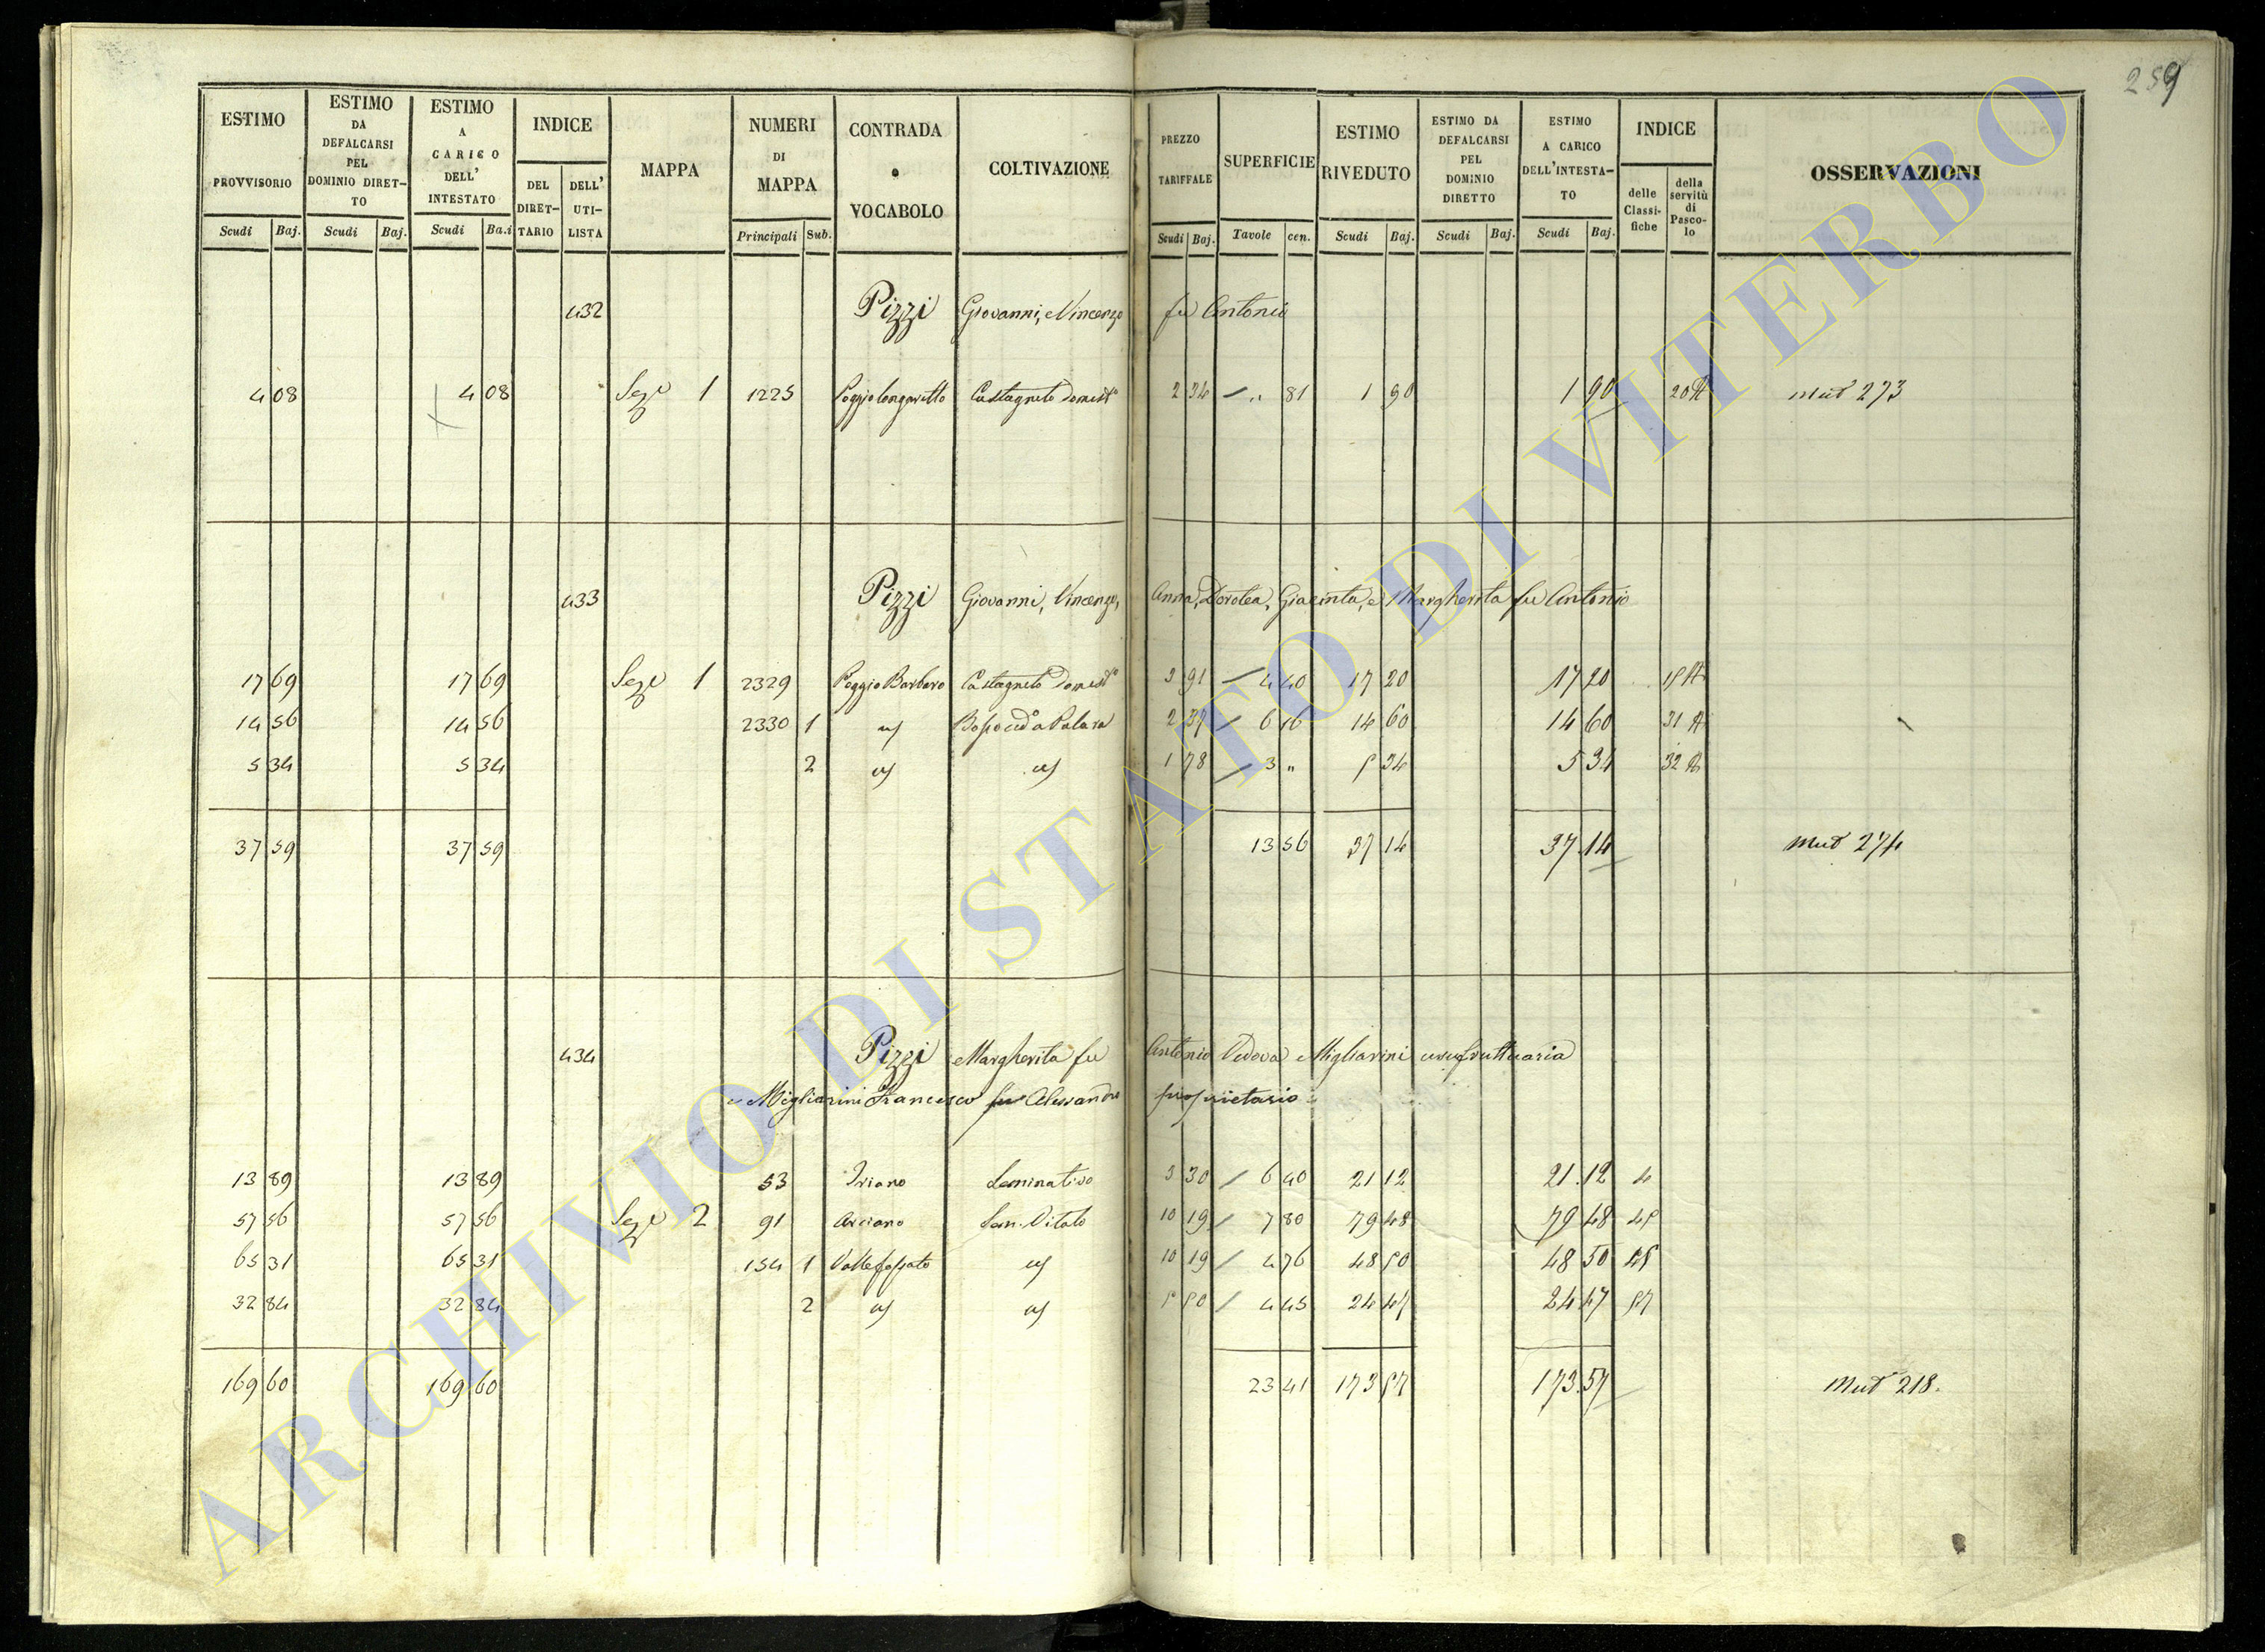 259
ESTIMO PROVVISORIO
ESTIMO DA DEFALCARSI PEL DOMINIO DIRET-TO
ESTIMO A CARICO DELL' INTESTATO
INDICE
DEL DIRET-TARIO
DELL' UTI-LISTA
MAPPA
NUMERI DI MAPPA
CONTRADA o VOCABOLO
COLTIVAZIONE
PREZZO TARIFFALE
SUPERFICIE
ESTIMO RIVEDUTO
ESTIMO DA DEFALCARSI PEL DOMINIO DIRETTO
ESTIMO A CARICO DELL'INTESTA-TO
INDICE
delle Classi-fiche
della servitù di Pasco-lo
OSSERVAZIONI
Scudi Baj. Scudi Baj. Scudi Ba.i Principali Sub. Scudi Baj. Tavole cen. Scudi Baj. Scudi Baj. Scudi Baj.
432 Pizzi Giovanni, e Vincenzo fu Antonio
4 08 4 08 Sez.e 1 1225 Poggio longaretto Castagneto domest.o 2 34 „ 81 1 90 1 90 20 mut 273
433 Pizzi Giovanni, Vincenzo, Anna, Dorotea, Giacinta, e Margherita fu Antonio
17 69 17 69 Sez.e 1 2329 Poggio Barbaro Castagneto domest.o 3 91 4 40 17 20 17 20
14 56 14 56 2330 1 Bosco ced.o a Palara 2 37 6 16 14 60 14 60 31
5 34 5 34 2 1 78 3 „ 5 34 5 34 32
37 59 37 59 13 56 37 14 37 14 mut 274
434 Pizzi Margherita fu Antonio Vedova Migliarini usufruttuaria
e Migliarini Francesco fu Alessandro proprietario
13 89 13 89 53 Iriano Seminativo 3 30 6 40 21 12 21.12 4
57 56 57 56 Sez.e 2 91 Arciano Sem. Vitato 10 19 7 80 79 48 79 48 45
65 31 65 31 154 1 Vallefossato 10 19 4 76 48 50 48 50 45
32 84 32 84 2 5 50 4 45 24 47 24 47 57
169 60 169 60 23 41 173 57 173.57 mut 218.
ARCHIVIO DI STATO DI VITERBO